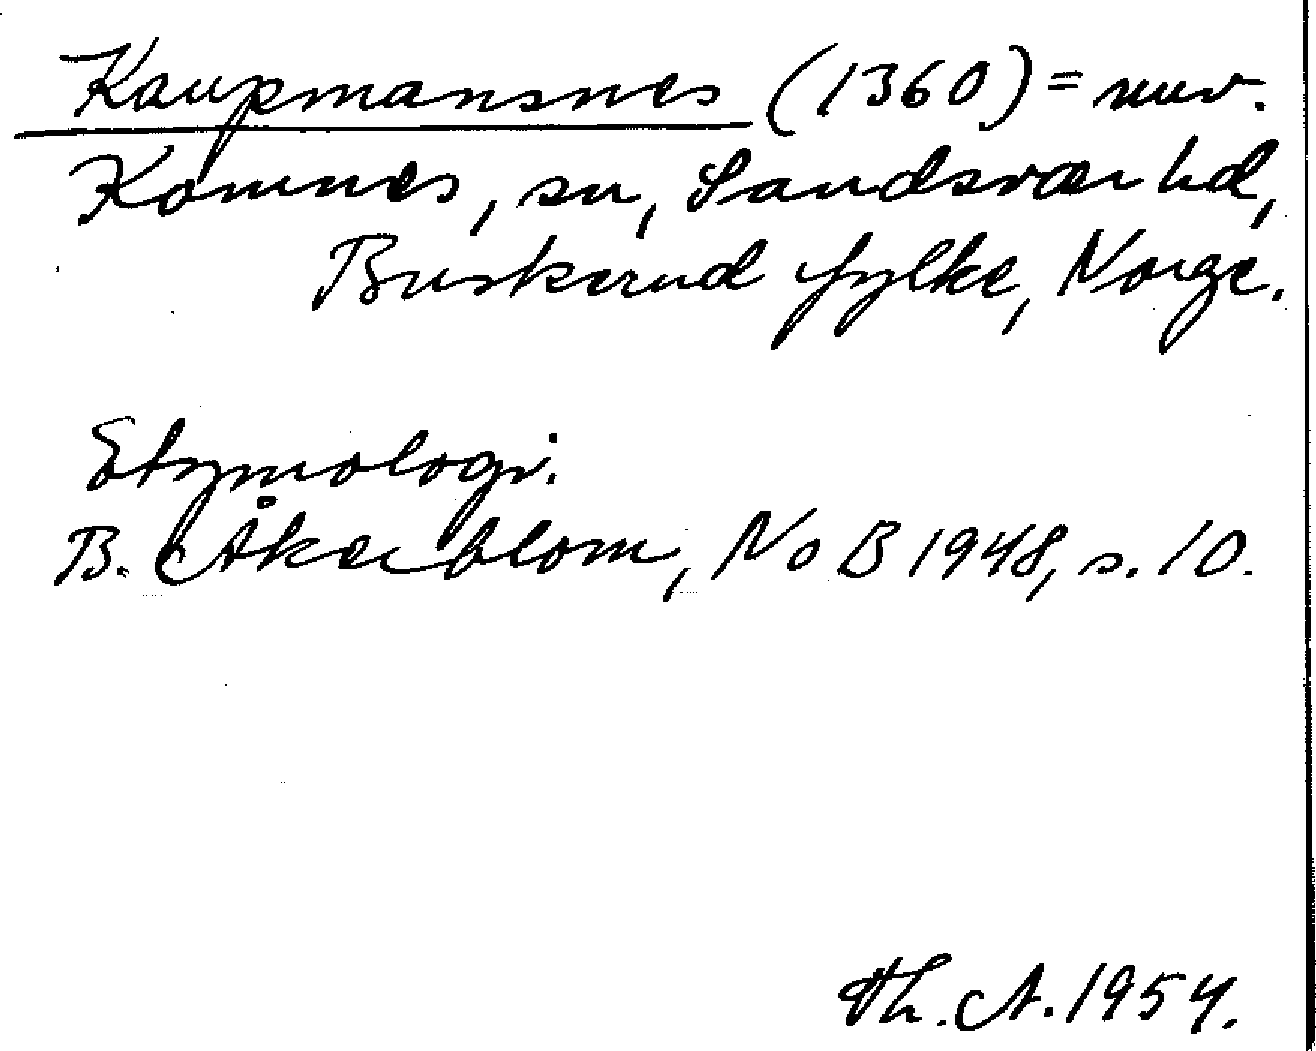 Kaupmansnes (1360) = nuv.
Komnes, sn, Sandsvær hd,
Buskerud fylke, Norge.
Etymologi.
B. Åkerblom, NoB 1948, s. 10.
Th. A. 1954.